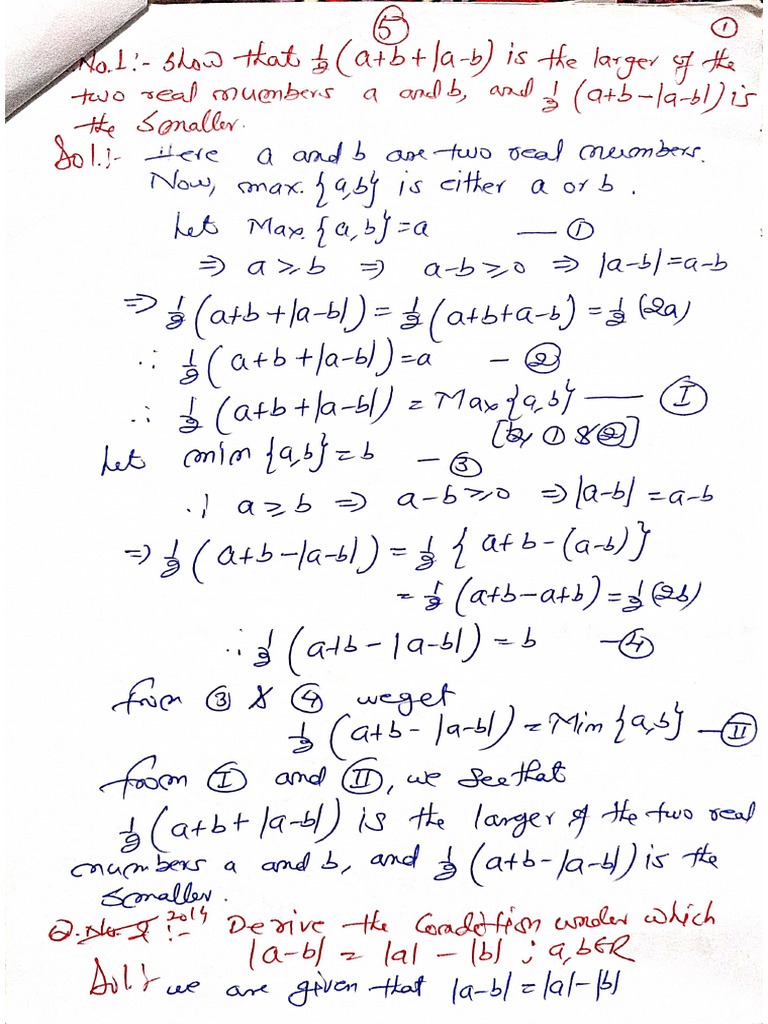 5
1
No.1:- Show that 1/2 (a+b+|a-b) is the larger of the
two real numbers a and b, and 1/2 (a+b-|a-b|) is
the smaller.
Sol.:- Here a and b are two real numbers.
Now, max.{a,b} is either a or b.
Let Max.{a,b}=a — ①
⇒ a≥b ⇒ a-b≥0 ⇒ |a-b|=a-b
⇒ 1/2 (a+b+|a-b|) = 1/2 (a+b+a-b) = 1/2 (2a)
∴ 1/2 (a+b+|a-b|)=a — ②
∴ 1/2 (a+b+|a-b|) = Max{a,b} — Ⅰ
[by ① & ②]
Let min {a,b}=b — ③
∴ a≥b ⇒ a-b≥0 ⇒ |a-b| = a-b
⇒ 1/2 (a+b-|a-b|) = 1/2 { a+b-(a-b)}
= 1/2 (a+b-a+b) = 1/2 (2b)
∴ 1/2 (a+b-|a-b|) = b — ④
from ③ & ④ we get
1/2 (a+b-|a-b|) = Min {a,b} — Ⅱ
from Ⅰ and Ⅱ, we see that
1/2 (a+b+|a-b|) is the larger of the two real
numbers a and b, and 1/2 (a+b-|a-b|) is the
smaller.
Q. 2014 :- Derive the Condition under which
|a-b| = |a| - |b| ; a,b∈R
Sol:- we are given that |a-b|=|a|-|b|